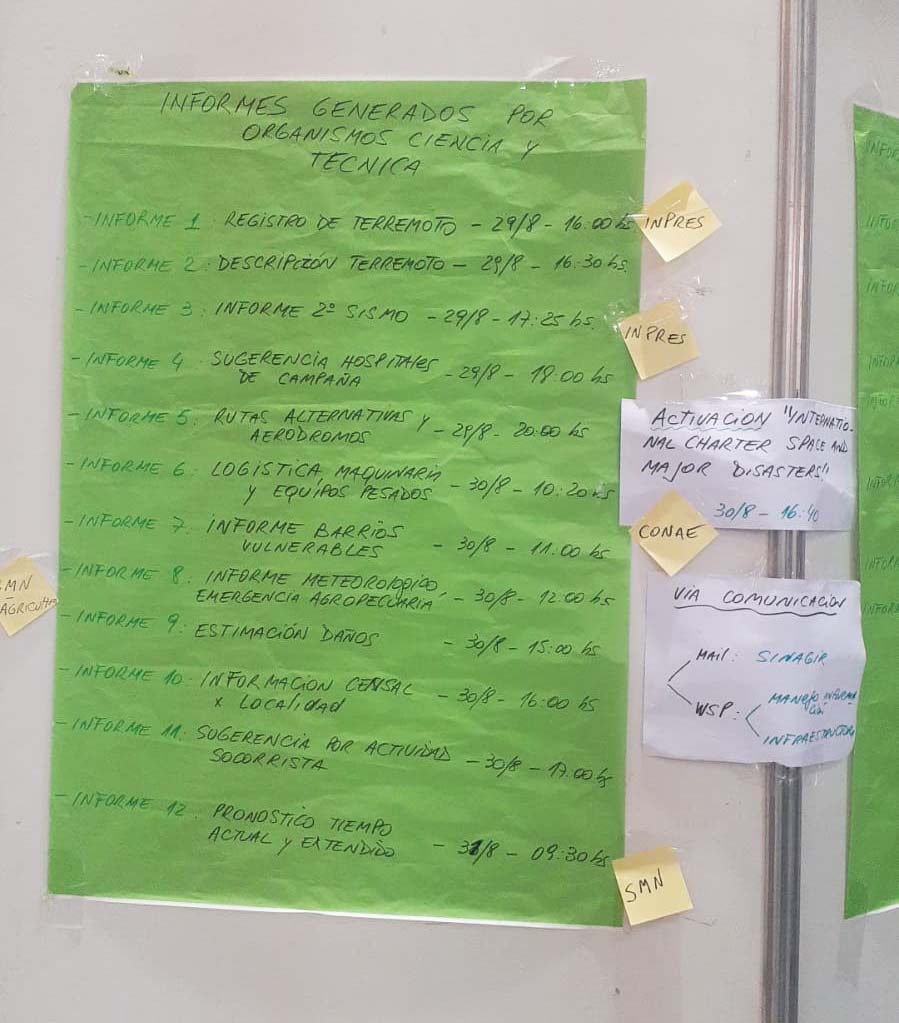 INFORMES GENERADOS POR
ORGANISMOS CIENCIA Y
TECNICA
- INFORME 1 : REGISTRO DE TERREMOTO - 29/8 - 16:00 hs
INPRES
- INFORME 2 : DESCRIPCIÓN TERREMOTO - 29/8 - 16:30 hs.
- INFORME 3 : INFORME 2º SISMO - 29/8 - 17:25 hs.
INPRES
- INFORME 4 : SUGERENCIA HOSPITALES
DE CAMPAÑA - 29/8 - 18:00 hs
- INFORME 5 : RUTAS ALTERNATIVAS Y
AERÓDROMOS - 29/8 - 20:00 hs
- INFORME 6 : LOGISTICA MAQUINARIA
Y EQUIPOS PESADOS - 30/8 - 10:20 hs
- INFORME 7 : INFORME BARRIOS
VULNERABLES - 30/8 - 11:00 hs
- INFORME 8 : INFORME METEOROLOGICO,
EMERGENCIA AGROPECUARIA - 30/8 - 12:00 hs
SMN
-
AGRICULT
- INFORME 9 : ESTIMACIÓN DAÑOS - 30/8 - 15:00 hs
- INFORME 10 : INFORMACION CENSAL
x LOCALIDAD - 30/8 - 16:00 hs
- INFORME 11 : SUGERENCIA POR ACTIVIDAD
SOCORRISTA - 30/8 - 17:00 hs
- INFORME 12 : PRONOSTICO TIEMPO
ACTUAL Y EXTENDIDO - 31/8 - 09:30 hs
SMN
ACTIVACION "INTERNATIO-
NAL CHARTER SPACE AND
MAJOR DISASTERS"
30/8 - 16:40
CONAE
VIA COMUNICACION
MAIL: SINAGIR
WSP: MANEJO INFORMA
CION
INFRAESTRUCTUR